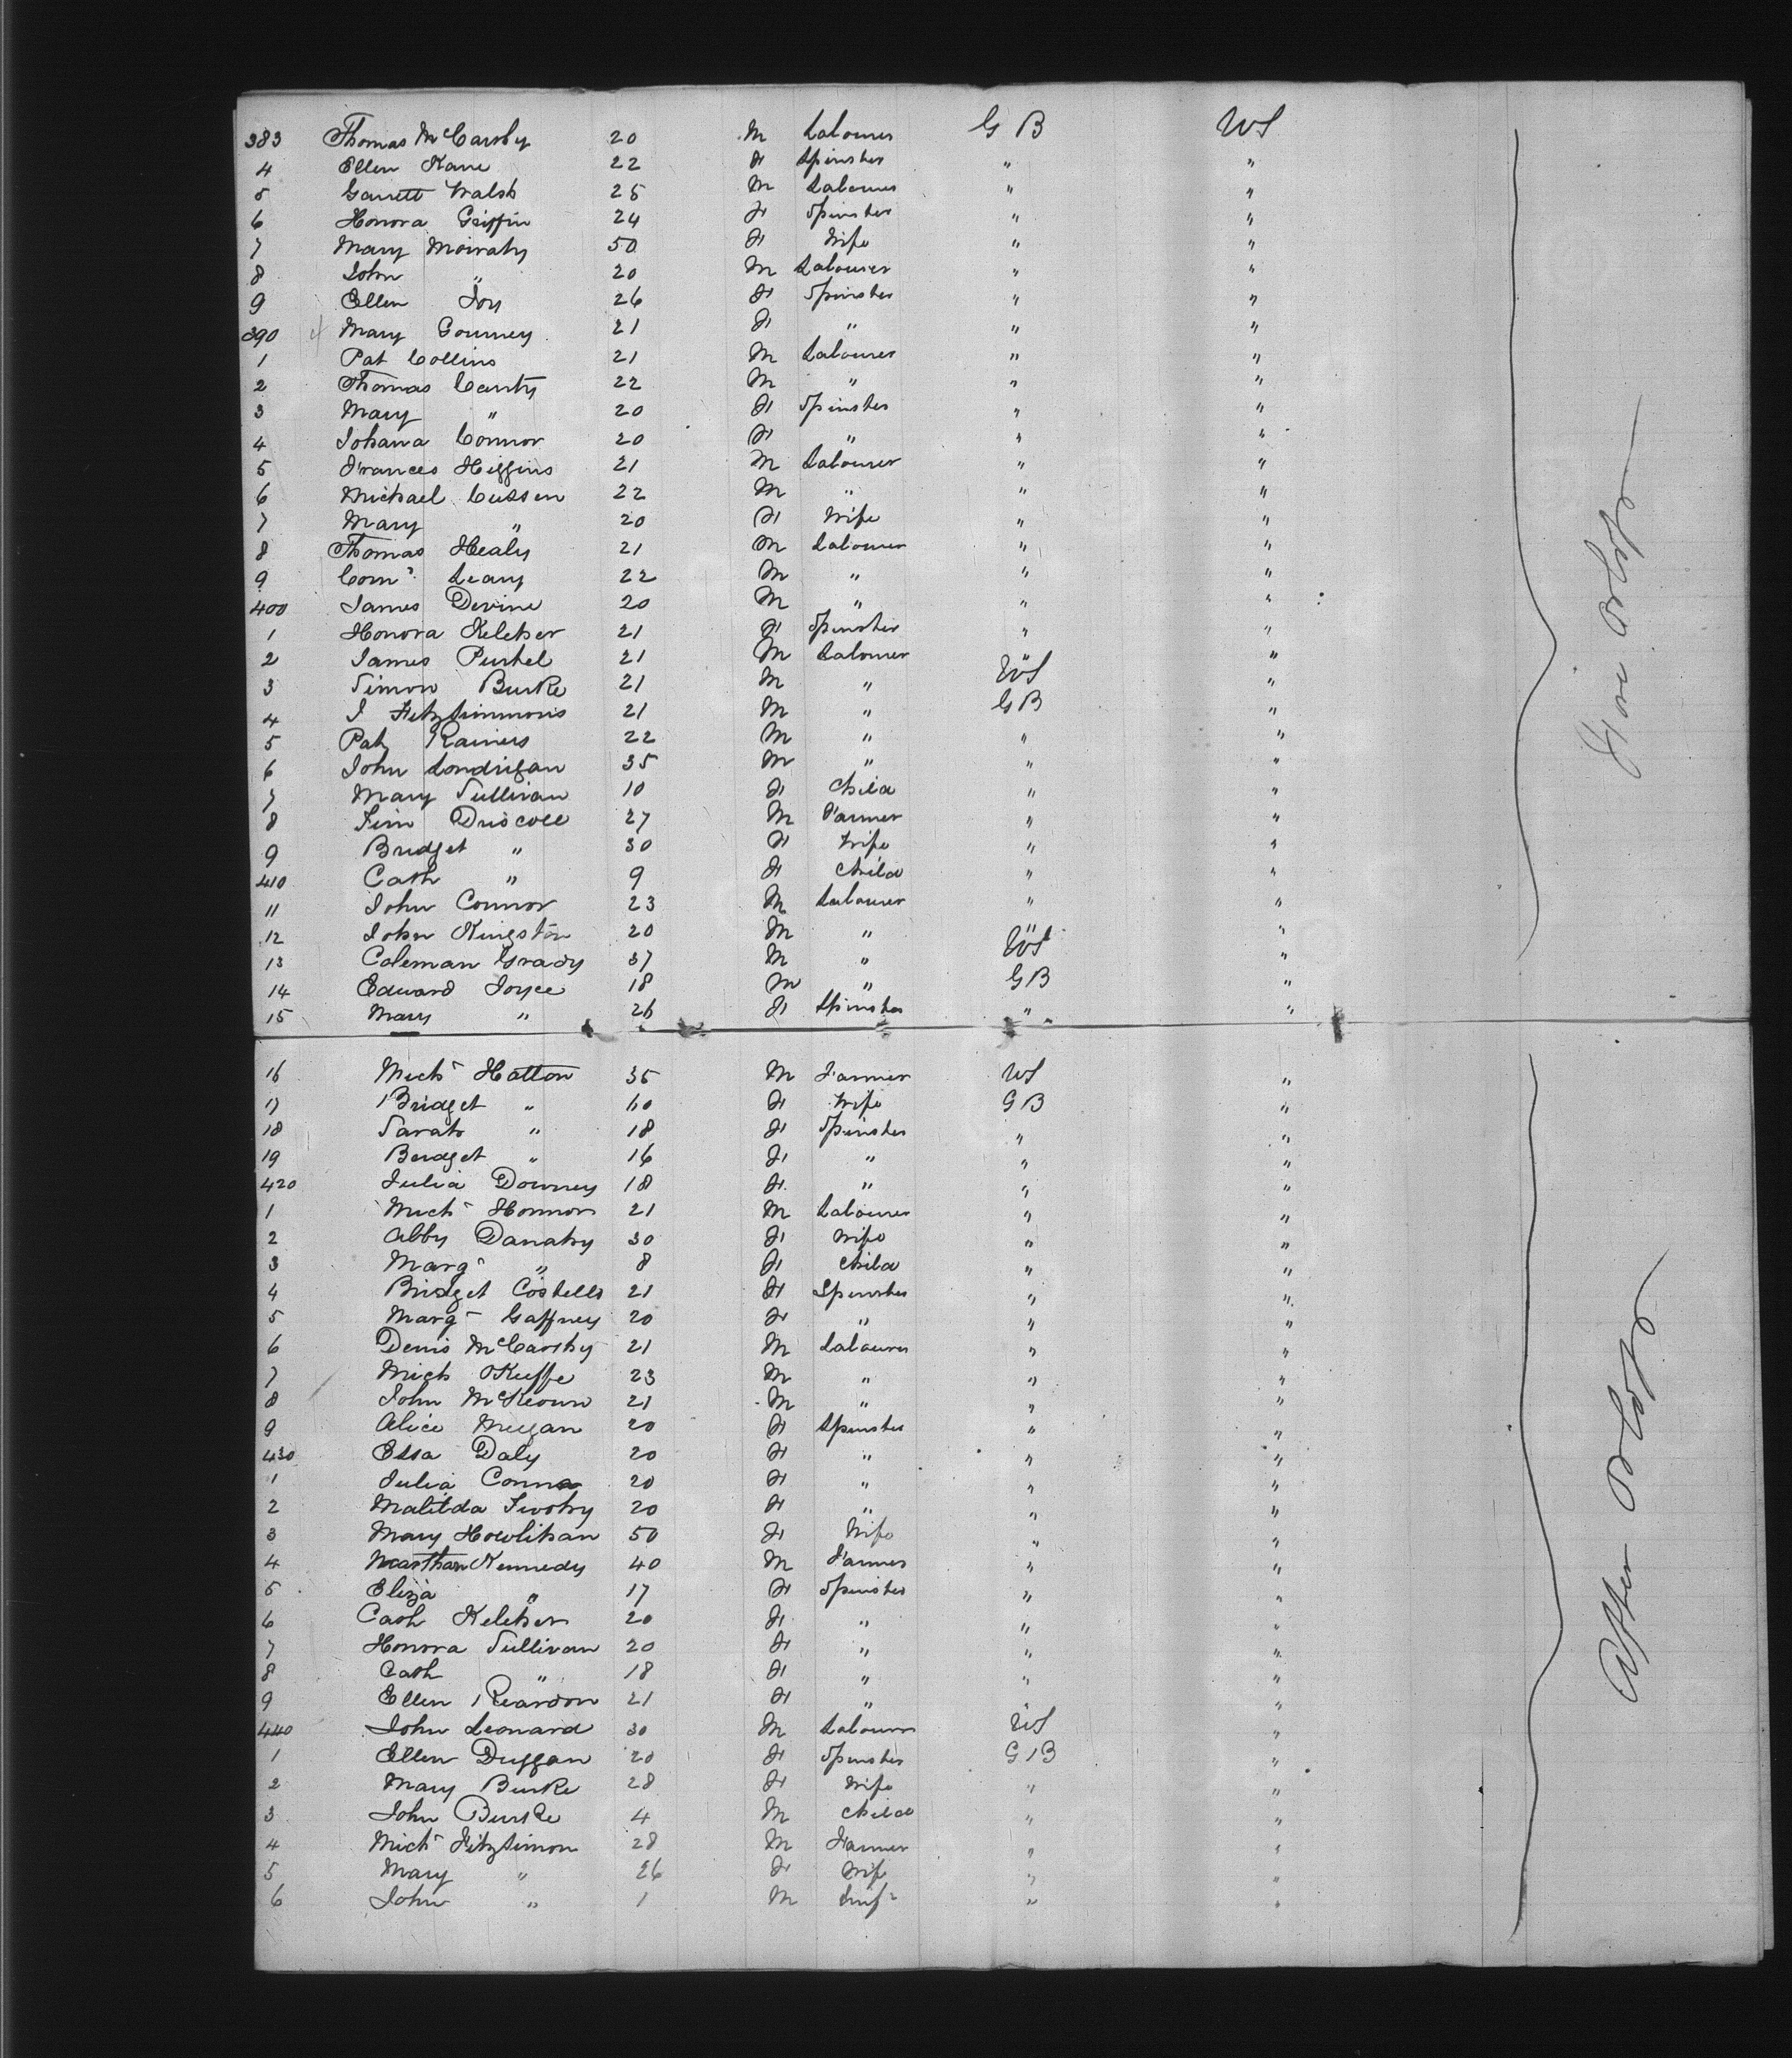 383 Thomas McCarthy 20 M Labourer GB US
4 Ellen Kane 22 F Spinster " "
5 Garrett Walsh 25 M Labourer " "
6 Honora Griffin 24 F Spinster " "
7 Mary Moriaty 50 F Wife " "
8 John " 20 M Labourer " "
9 Ellen Joy 26 F Spinster " "
390 Mary Gourney 21 F " " "
1 Pat Collins 21 M Labourer " "
2 Thomas Canty 22 M " " "
3 Mary " 20 F Spinster " "
4 Johana Connor 20 F " " "
5 Frances Higgins 21 M Labourer " "
6 Michael Cussen 22 M " " "
7 Mary " 20 F Wife " "
8 Thomas Healy 21 M Labourer " "
9 Corns Leary 22 M " " "
400 James Devine 20 M " " "
1 Honora Keleher 21 F Spinster " "
2 James Purtel 21 M Labourer " "
3 Simon Burke 21 M " US "
4 J Fitzsimmons 21 M " GB "
5 Pat Rainers 22 M " " "
6 John Londrigan 35 M " " "
7 Mary Sullivan 10 F Child " "
8 Tim Driscoll 27 M Farmer " "
9 Bridget " 30 F Wife " "
410 Cath " 9 F Child " "
11 John Connor 23 M Labourer " "
12 John Kingston 20 M " " "
13 Coleman Grady 37 M " US "
14 Edward Joyce 18 M " GB "
15 Mary " 26 F Spinster " "
Fore Orlop
16 Michl Hatton 35 M Farmer US "
17 Bridget " 60 F Wife GB "
18 Sarah " 18 F Spinster " "
19 Bridget " 16 F " " "
420 Julia Downey 18 F " " "
1 Michl Honnor 21 M Labourer " "
2 Abby Danahy 30 F Wife " "
3 Margt " 8 F Child " "
4 Bridget Costello 21 F Spinster " "
5 Margt Gaffney 20 F " " "
6 Denis McCarthy 21 M Labourer " "
7 Mich OKeeffe 23 M " " "
8 John McKeown 21 M " " "
9 Alice Meegan 20 F Spinster " "
430 Essa Daly 20 F " " "
1 Julia Connor 20 F " " "
2 Matilda 20 F " " "
3 Mary Howlihan 50 F Wife " "
4 Kennedy 40 M Farmer " "
5 Eliza " 17 F Spinster " "
6 Cath Keleher 20 F " " "
7 Honora Sullivan 20 F " " "
8 Cath " 18 F " " "
9 Ellen Reardon 21 F " " "
440 John Leonard 30 M Labourer US "
1 Ellen Duggan 20 F Spinster GB "
2 Mary Burke 28 F Wife " "
3 John Burke 4 M Child " "
4 Michl Fitzsimon 28 M Farmer " "
5 Mary " 26 F Wife " "
6 John " 1 M Inft " "
After Orlop